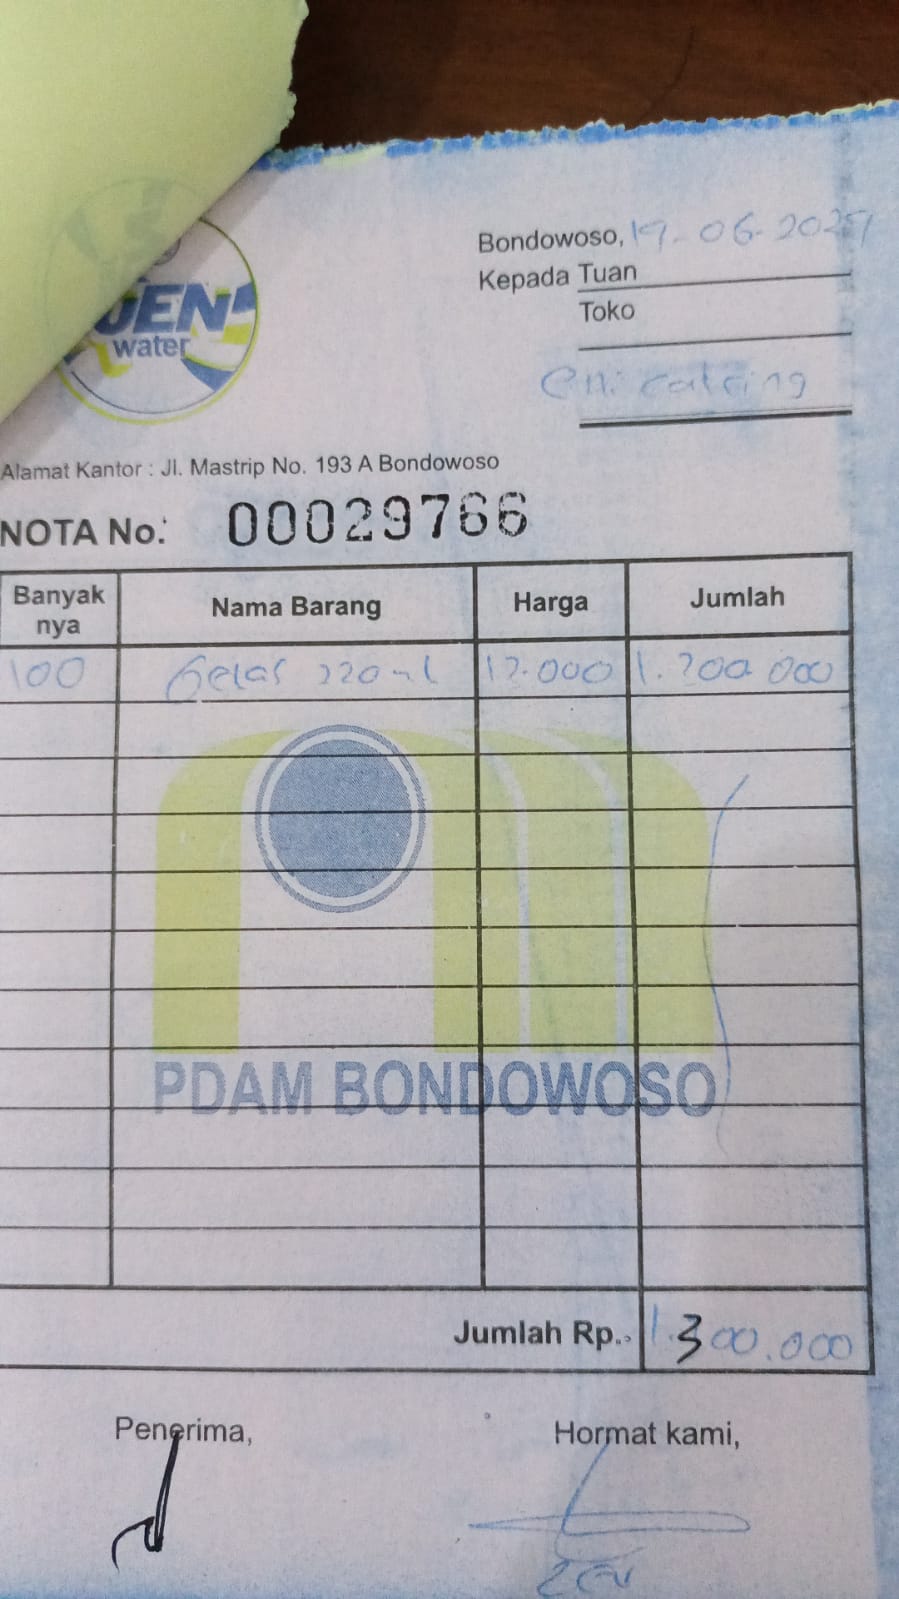 JEN
water
Bondowoso, 19-06-2024
Kepada Tuan
Toko
catering
Alamat Kantor : Jl. Mastrip No. 193 A Bondowoso
NOTA No.: 00029766
Banyak nya Nama Barang Harga Jumlah
100 Gelas 220 ml 12.000 1.200.000
PDAM BONDOWOSO
Jumlah Rp. 1.300.000
Penerima, Hormat kami,